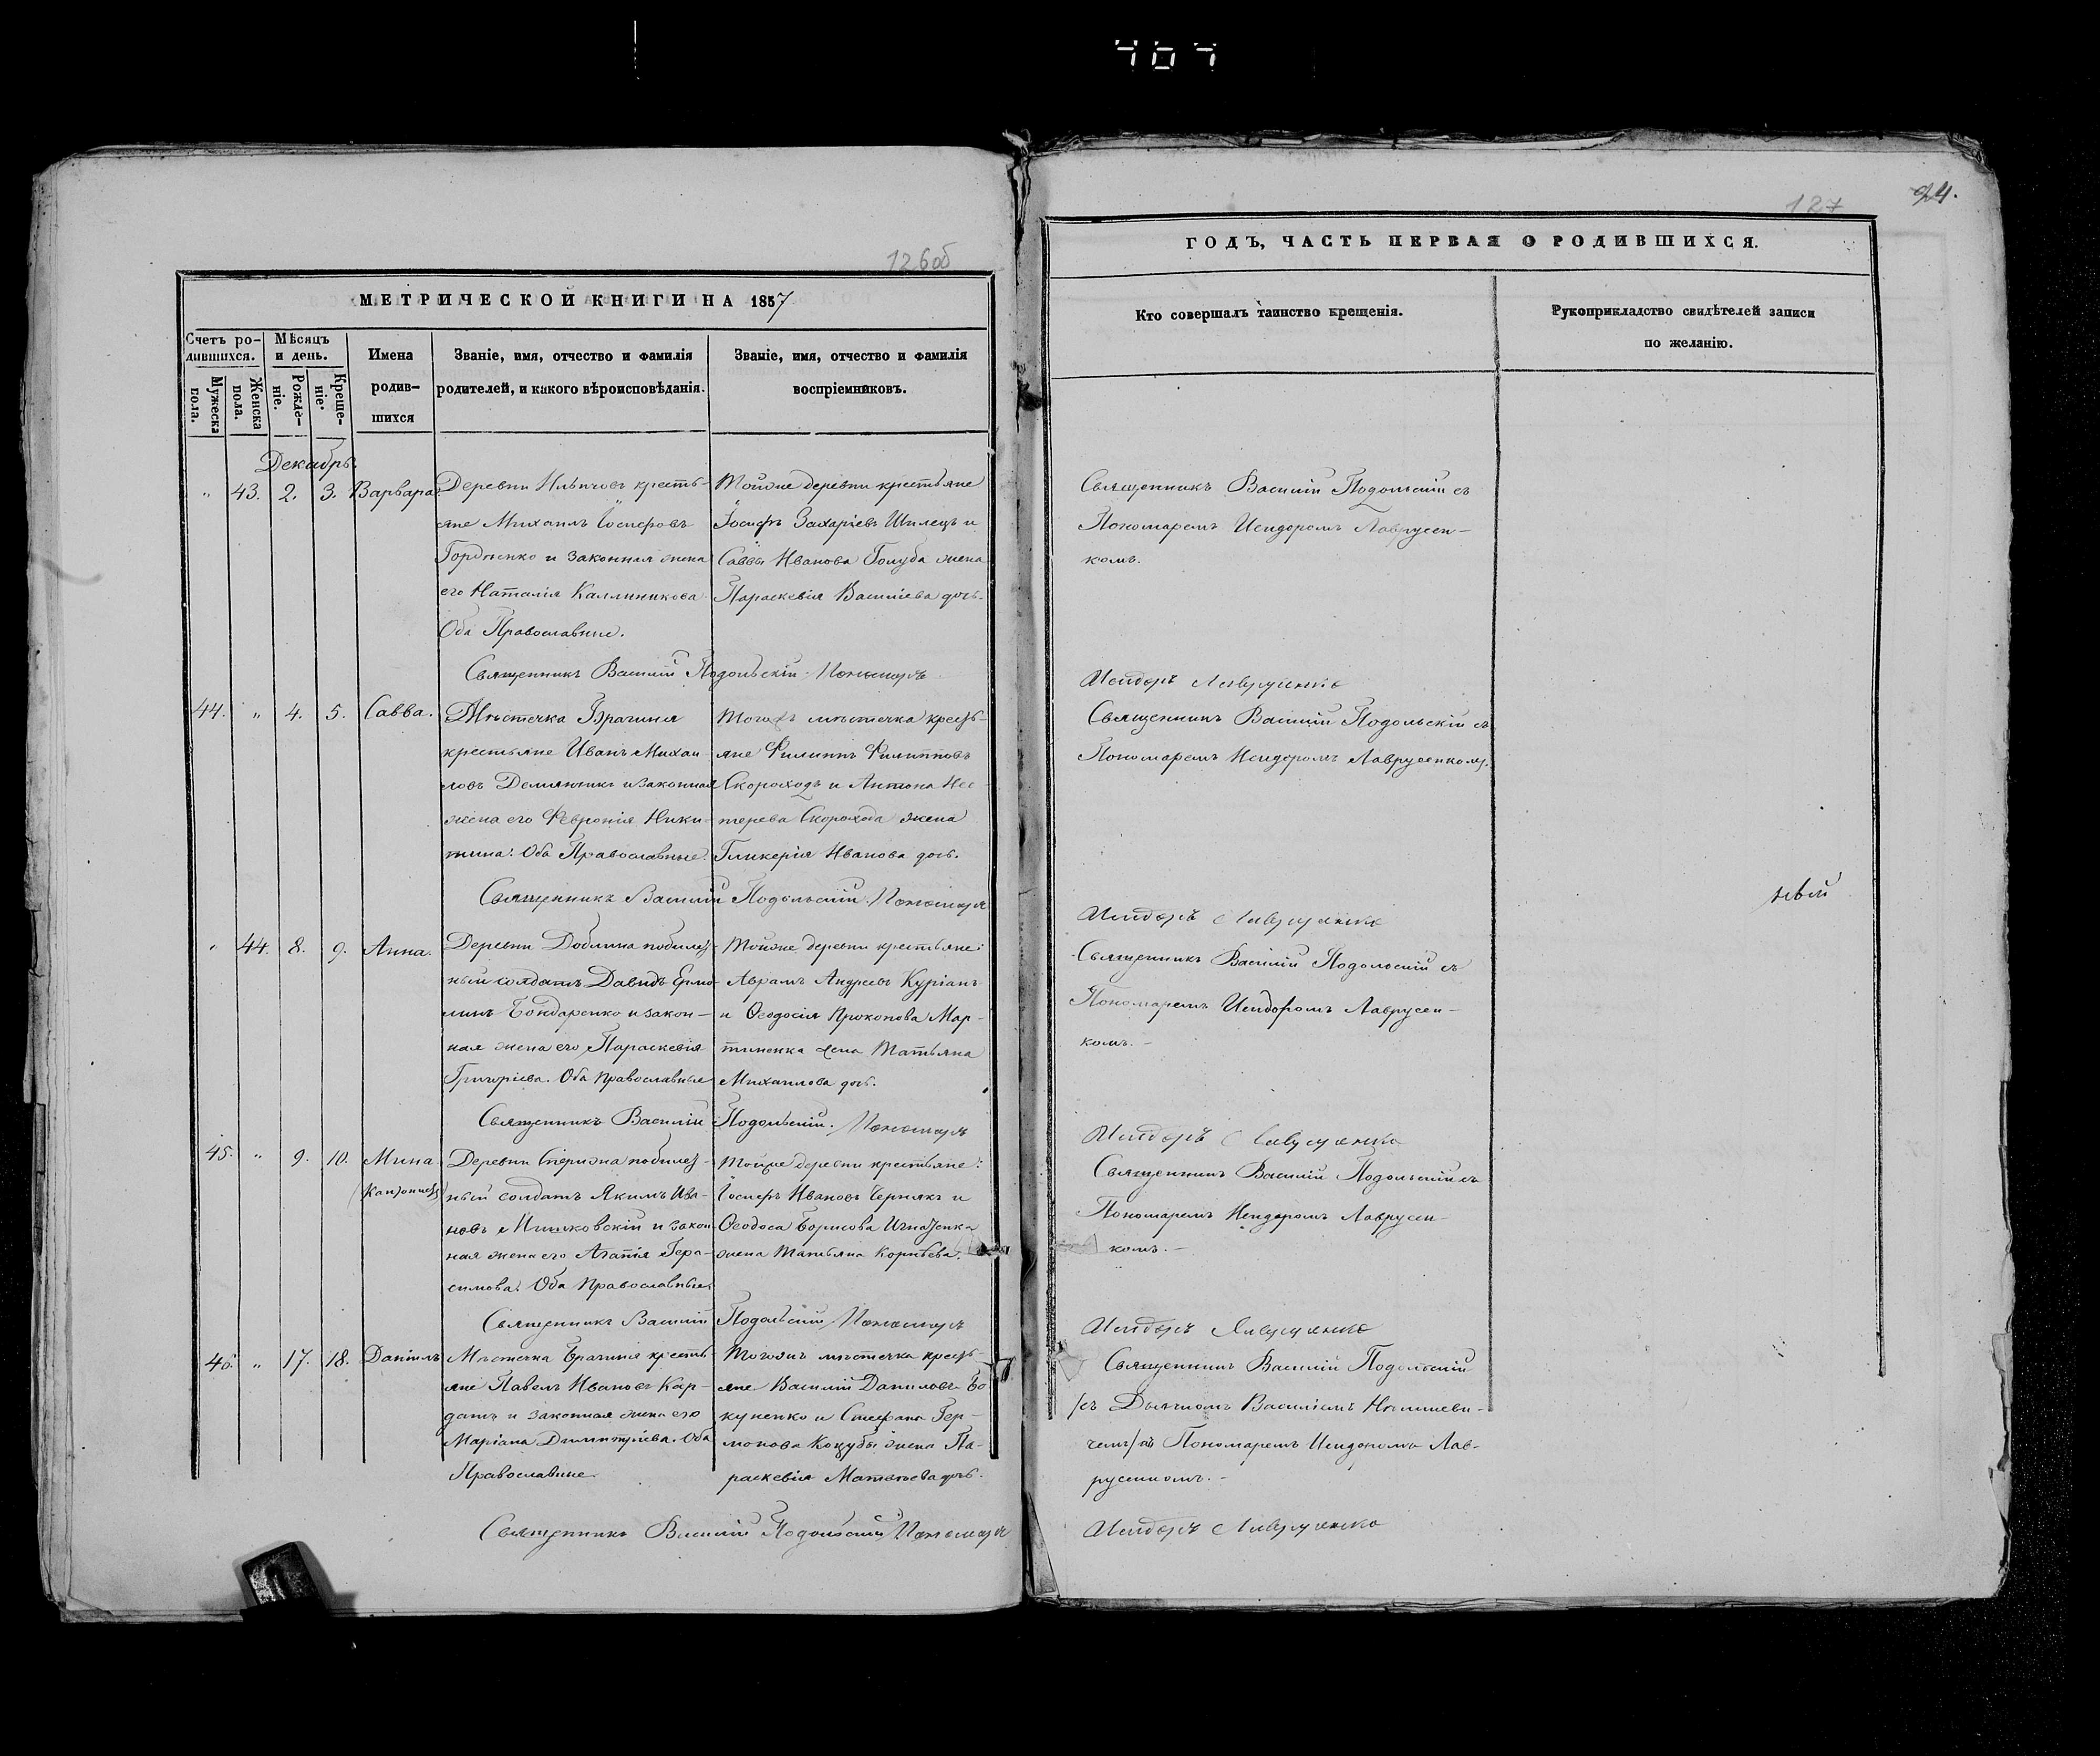 707
126об
МЕТРИЧЕСКОЙ КНИГИ НА 1857
Счетъ ро-
дившихся.
Мужеска
пола.
Женска
пола.
Мѣсяцъ
и день.
Рожде-
ніе.
Креще-
ніе.
Имена
родив-
шихся
Званіе, имя, отчество и фамилія
родителей, и какого вѣроисповѣданія.
Званіе, имя, отчество и фамилія
воспріемниковъ.
Декабрь.
" 43. 2. 3. Варвара.
Деревни Ильичовъ кресть-
яне Михаилъ Іосифовъ
Гордѣенко и законная жена
его Наталія Каллиникова
Оба Православные.
Тойже деревни крестьяне
Іосифъ Захаріевъ Шилецъ и
Саввы Иванова Голуба жена
Параскевія Василіева дочь.
Священникъ Василій Подольскій. Пономарь
44. " 4. 5. Савва.
Мѣстечка Брагиня
крестьяне Иванъ Михаи
ловъ Демянчикъ и законная
жена его Февронія Ники-
тина. Оба Православные.
Тогожъ мѣстечка кресть-
яне Филиппъ Филипповъ
Скороходъ и Антона Нес-
терева Скорохода жена
Гликерія Иванова дочь.
Священникъ Василій Подольскій. Пономарь
" 44. 8. 9. Анна.
Деревни Доблина побилет-
ный солдатъ Давидъ Ермо
линъ Бондаренко и закон-
ная жена его Параскевія
Григоріева. Оба Православные
Тойже деревни крестьяне:
Аврамъ Андреевъ Куріанъ
и Ѳеодосія Прокопова Мар-
тиненка жена Татьяна
Михаилова дочь.
Священникъ Василій Подольскій. Пономарь
45. " 9. 10. Мина
(Кантонистъ)
Деревни побилет-
ный солдатъ Якимъ Ива-
новъ и закон
ная жена его Агапія Гера-
симова. Оба Православные.
Тойже деревни крестьяне:
Іосифъ Ивановъ Чернякъ и
Ѳеодоса Борисова Игнатенка
жена Татьяна Корнѣева.
Священникъ Василій Подольскій Пономарь
46. " 17. 18. Даніилъ
Мѣстечка Брагиня кресть-
яне Павелъ Ивановъ Кар-
датъ и законная жена его
Маріана Димитріева. Оба
Православные.
Тогожъ мѣстечка кресть-
яне Василій Даниловъ Бо
куненко и Стефана Гер-
монова Коцубы жена Па-
раскевія Матвѣева дочь.
Священникъ Василій Подольскій Пономарь
127
94.
ГОДЪ, ЧАСТЬ ПЕРВАЯ О РОДИВШИХСЯ.
Кто совершалъ таинство крещенія.
Рукоприкладство свидѣтелей записи
по желанію.
Священникъ Василій Подольскій съ
Пономаремъ Исидоромъ Лаврусен-
комъ.
Исидоръ Лаврусенко
Священникъ Василій Подольскій съ
Пономаремъ Исидоромъ Лаврусенкомъ.
Исидоръ Лаврусенко
Священникъ Василій Подольскій съ
Пономаремъ Исидоромъ Лаврусен-
комъ. -
Исидоръ Лаврусенко
Священникъ Василій Подольскій съ
Пономаремъ Исидоромъ Лаврусен-
комъ. -
Исидоръ Лаврусенко
Священникъ Василій Подольскій
/съ Дьячкомъ Василіемъ
чемъ/ съ Пономаремъ Исидоромъ Лав-
русенкомъ. -
Исидоръ Лаврусенко